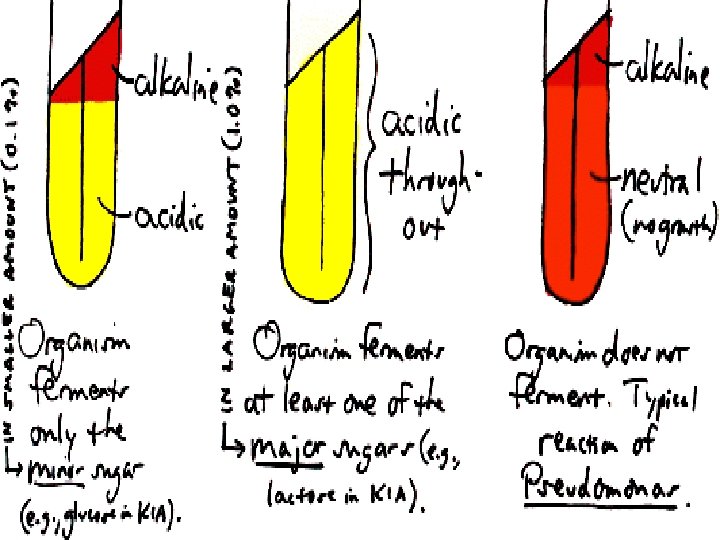 alkaline
acidic
IN SMALLER AMOUNT (0.1%)
Organism
ferments
only the
minor sugar
(e.g., glucose in KIA).
acidic
through-
out
IN LARGER AMOUNT (1.0%)
Organism ferments
at least one of the
major sugars (e.g.,
lactose in KIA).
alkaline
neutral
(no growth)
Organism does not
ferment. Typical
reaction of
Pseudomonas.